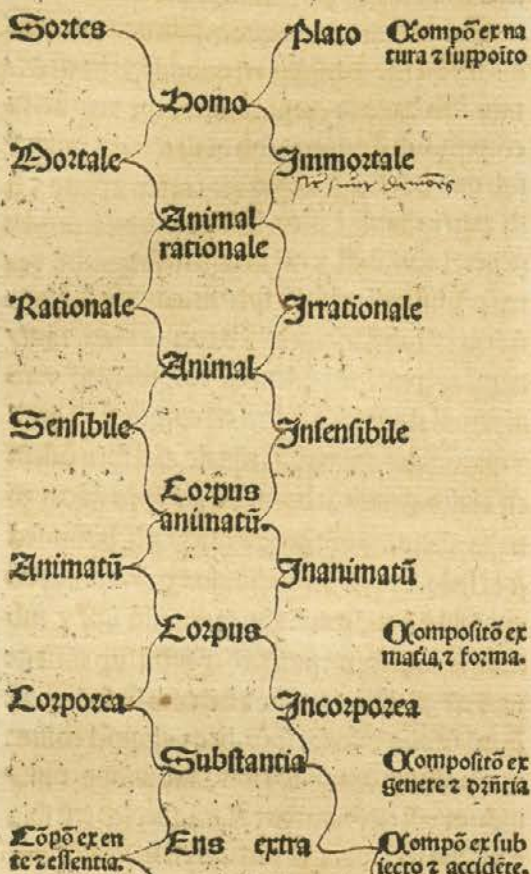 Sortes Plato Cōpō ex na
tura ⁊ ſuppoito
Homo
Mortale Immortale
Animal
rationale
Rationale Irrationale
Animal
Senſibile Inſenſibile
Corpus
animatū.
Animatū Inanimatū
Corpus Cōpoſitō ex
mat̄ia, ⁊ forma.
Corporea Incorporea
Subſtantia Cōpoſitō ex
genere ⁊ dr̄ntia
Cōpō ex en
te ⁊ eſſentia. Ens extra Cōpō ex ſub
iecto ⁊ accidēte.